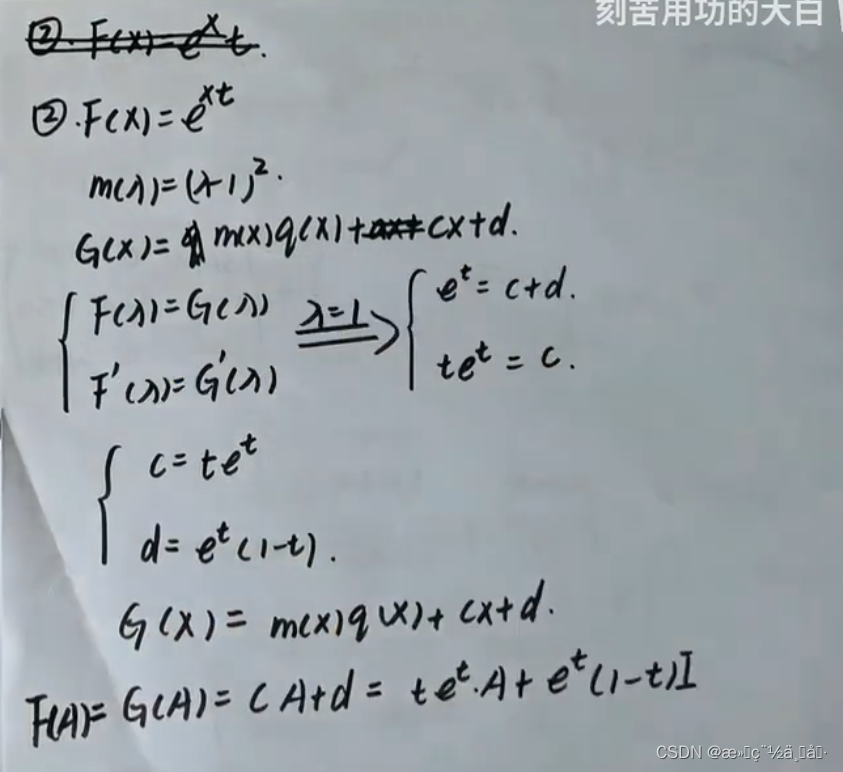 刻苦用功的大白
②. F(x)=e^x t.
②. F(x)=e^{xt}
m(λ)=(λ-1)^2.
G(x)= m(x)q(x)+ax+cx+d.
{ F(λ)=G(λ) F'(λ)=G'(λ) λ=1⟹ { e^t=c+d. te^t=c.
{ c=te^t
d=e^t(1-t).
G(x)=m(x)q(x)+cx+d.
F(A)=G(A)=CA+d=te^t.A+e^t(1-t)I
CSDN @æ»ç¨½ä¸å·